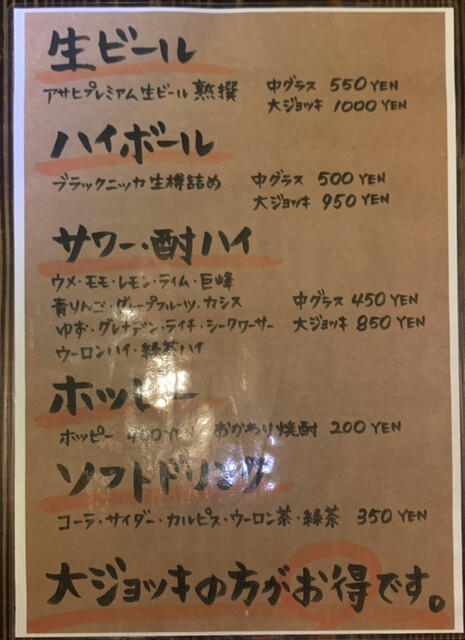 生ビール
アサヒプレミアム生ビール 熟撰 中グラス 550 YEN
大ジョッキ 1000 YEN
ハイボール
ブラックニッカ生樽詰め 中グラス 500 YEN
大ジョッキ 950 YEN
サワー・酎ハイ
ウメ・モモ・レモン・ライム・巨峰
青りんご・グレープフルーツ・カシス 中グラス 450 YEN
ゆず・グレナデン・ライチ・シークワーサー 大ジョッキ 850 YEN
ウーロンハイ・緑茶ハイ
ホッピー
ホッピー YEN おかわり焼酎 200 YEN
ソフトドリンク
コーラ・サイダー・カルピス・ウーロン茶・緑茶 350 YEN
大ジョッキの方がお得です。